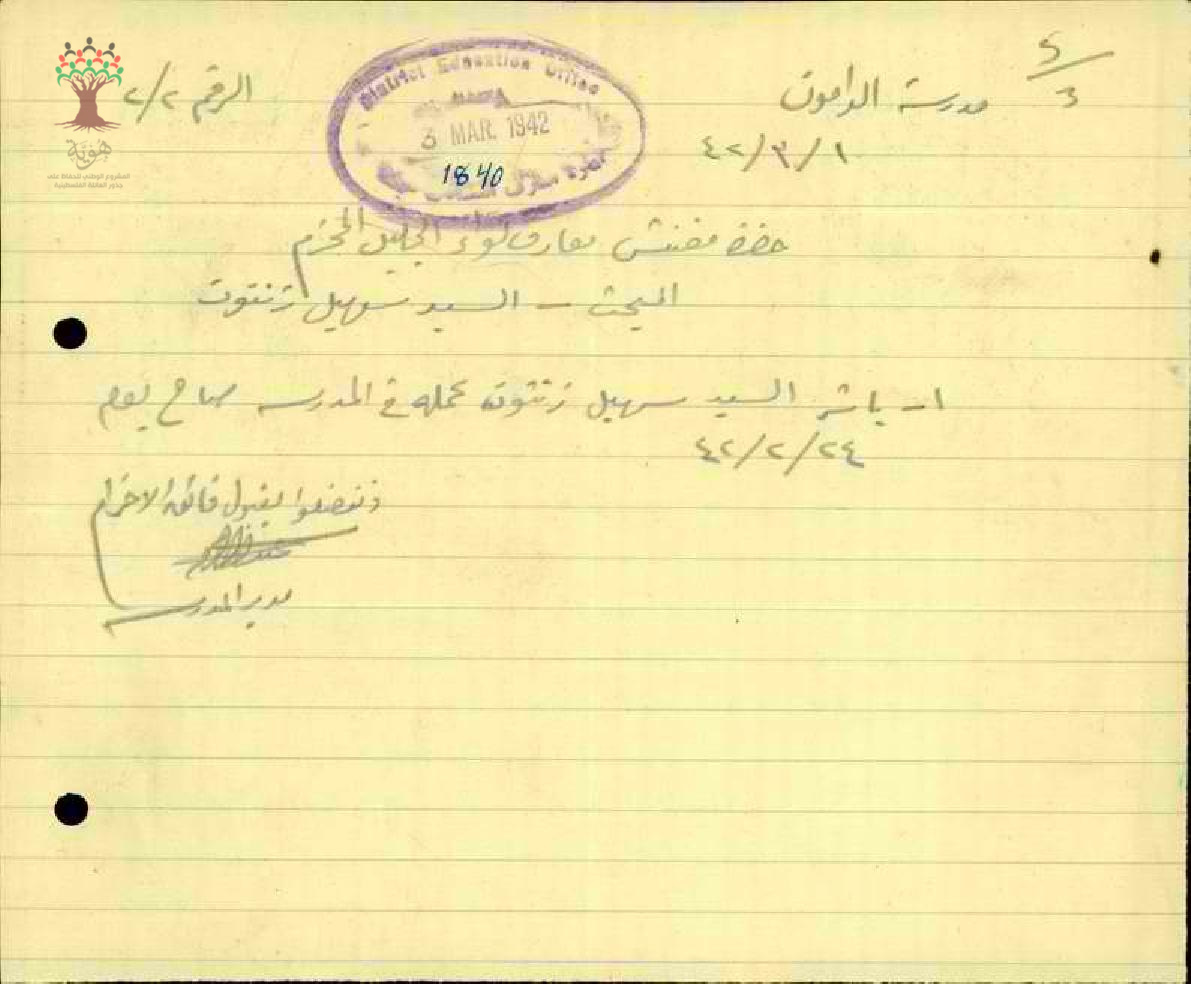 5/3
مدرسة الدامون
الرقم ٢/٢
١/٣/٤٢
District Education Office
HAIFA
3 MAR. 1942
1840
حضرة مفتش معارف لواء الجليل المحترم
المبحث - السيد سهيل زنتوت
١- باشر السيد سهيل زنتوت عمله في المدرسه صباح يوم
٤٢/٢/٢٤
وتفضلوا بقبول فائق الاحترام
مدير المدرسه
هوية
المشروع الوطني للحفاظ على
جذور العائلة الفلسطينية